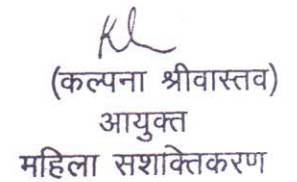 (कल्पना श्रीवास्तव)
आयुक्त
महिला सशक्तिकरण